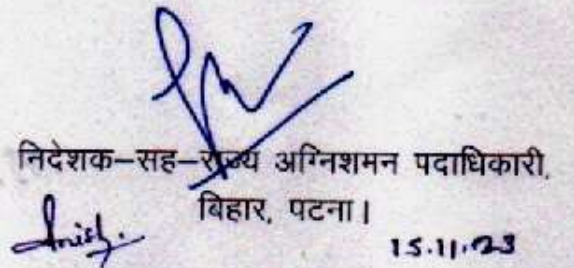 निदेशक–सह–राज्य अग्निशमन पदाधिकारी,
बिहार, पटना।
15.11.23